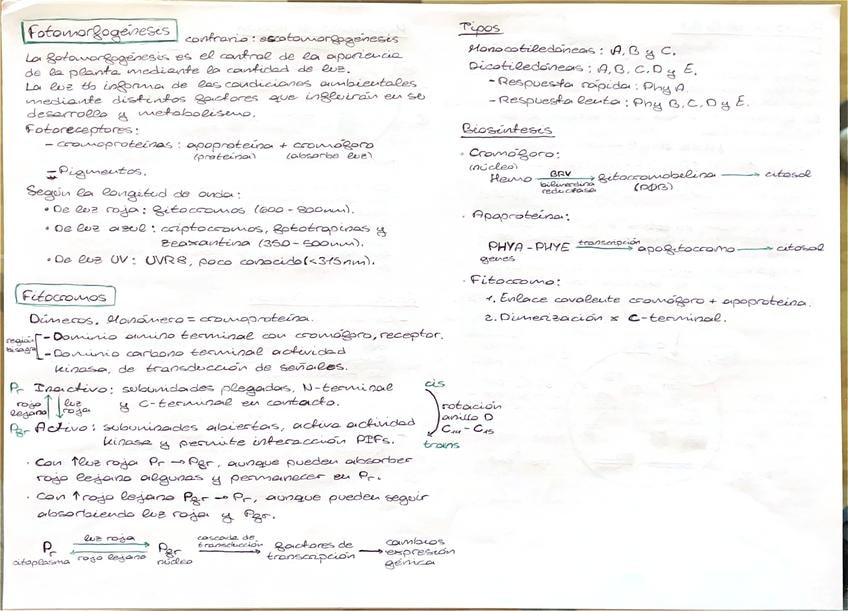 Fotomorfogénesis contrario: escotomorfogénesis
La fotomorfogénesis es el control de la apariencia
de la planta mediante la cantidad de luz.
La luz tb informa de las condiciones ambientales
mediante distintos factores que influirán en su
desarrollo y metabolismo.
Fotoreceptores:
- cromoproteínas: apoproteína + cromóforo
(proteína) (absorbe luz)
- Pigmentos.
Según la longitud de onda:
• De luz roja: fitocromos (600-800nm).
• De luz azul: criptocromos, fototropinas y
zeaxantina (350-500nm).
• De luz UV: UVR8, poco conocido (<315nm).
Fitocromos
Dímeros. Monómero = cromoproteína.
región bisagra
- Dominio amino terminal con cromóforo, receptor.
- Dominio carbono terminal actividad
kinasa, de transducción de señales.
Pr Inactivo: subunidades plegadas, N-terminal
y C-terminal en contacto.
rojo lejano ↑ ↓ luz roja
Pfr Activo: subunidades abiertas, activa actividad
kinasa y permite interacción PIFs.
cis
rotación
anillo D
C14 - C15
trans
· Con ↑luz roja Pr → Pfr, aunque pueden absorber
rojo lejano algunas y permanecer en Pr.
· Con ↑rojo lejano Pfr → Pr, aunque pueden seguir
absorbiendo luz roja y Pfr.
Pr luz roja → Pfr cascada de transducción → factores de transcripción → cambios expresión génica
citoplasma ← rojo lejano núcleo
Tipos
Monocotiledóneas: A, B y C.
Dicotiledóneas: A, B, C, D y E.
- Respuesta rápida: Phy A.
- Respuesta lenta: Phy B, C, D y E.
Biosíntesis
· Cromóforo:
(núcleo)
Hemo BRV → fitocromobilina → citosol
bilinerdina reductasa (PΦB)
· Apoproteína:
PHYA - PHYE transcripción → apofitocromo → citosol
genes
· Fitocromo:
1. Enlace covalente cromóforo + apoproteína.
2. Dimerización x C-terminal.